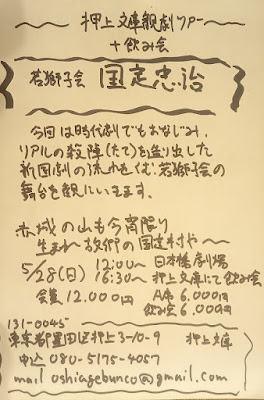 押上文庫観劇ツアー
+飲み会
若獅子会 国定忠治
今回は時代劇でもおなじみ、
リアルの殺陣(たて)を造り出した
新国劇の流れをくむ、若獅子会の
舞台を観にいきます。
赤城の山も今宵限り
生まれ故郷の国定村や〜
5/28(日) 12:00〜 日本橋劇場
16:30〜 押上文庫にて飲み会
会費 12.000円 A席 6.000円
飲み会 6.000円
131-0045
東京都墨田区押上3-10-9 押上文庫
申込 080-5175-4057
mail oshiagebunco@gmail.com